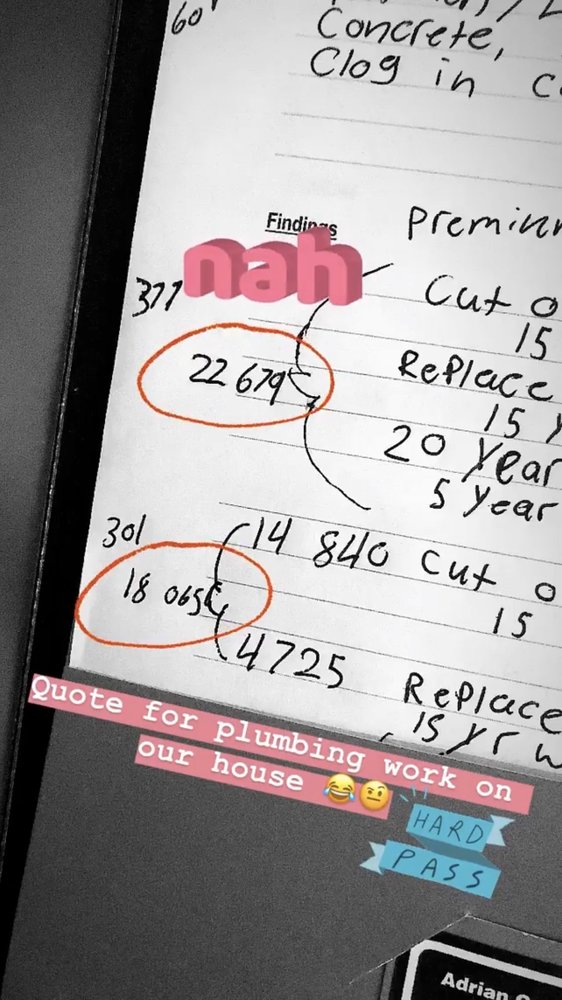 60
Concrete,
Clog in
Findings
Premium
nah
377
Cut
15
22 679
Replace
15
20 year
5 year
301
14 840 Cut
18 065
15
4725
Replace
15 yr w
Quote for plumbing work on
our house 😂🤨
HARD
PASS
Adrian